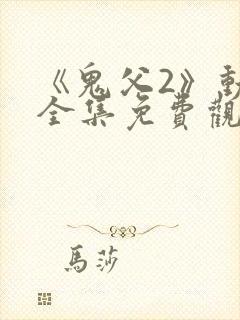 《鬼父2》動
全集免費觀
馬莎